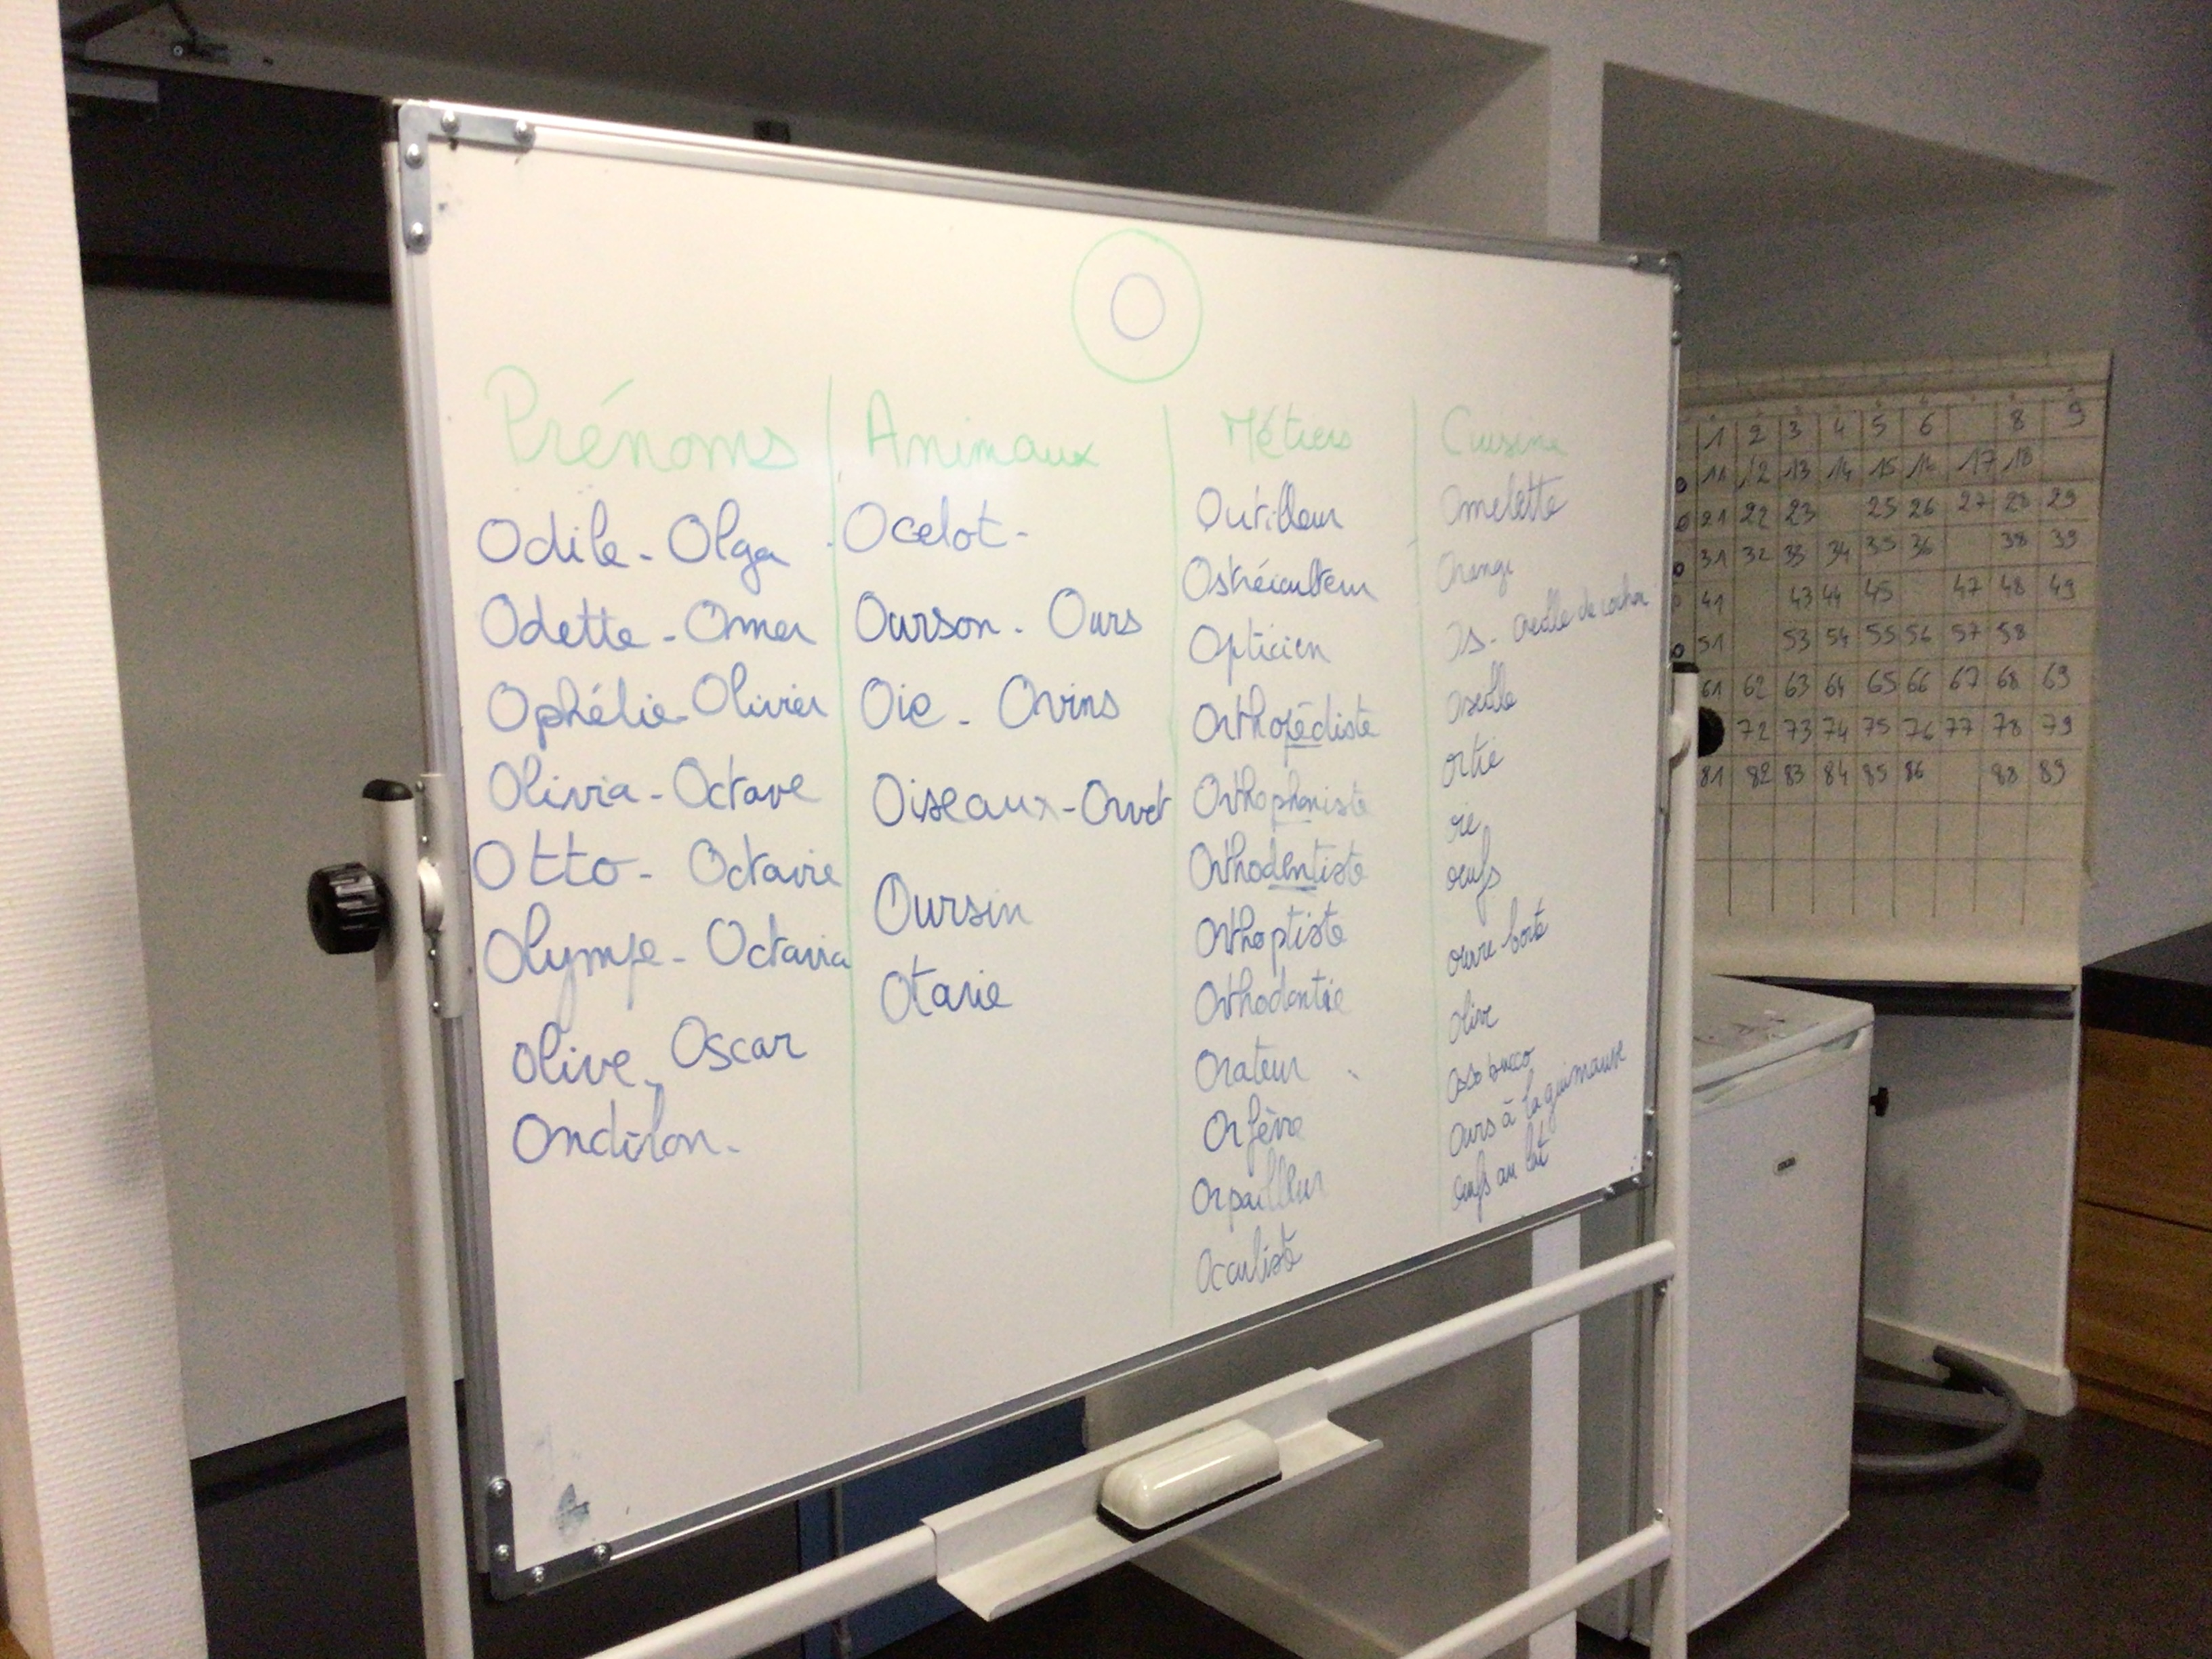 O
Prénoms
Odile - Olga
Odette - Omer
Ophélie - Olivier
Olivia - Octave
Otto - Octavie
Olympe - Octavia
Olive - Oscar
Ondilon.
Animaux
Ocelot -
Ourson - Ours
Oie - Ovins
Oiseaux - Orvet
Oursin
Otarie
Métiers
Outilleur
Ostréiculteur
Opticien
Orthopédiste
Orthophoniste
Orthodentiste
Orthoptiste
Orthodontie
Orateur
Orfèvre
Orpailleur
Oculiste
Cuisine
Omelette
Orange
Os - Oreille de cochon
Oseille
ortie
oie
oeufs
ouvre boîte
olive
osso bucco
Ours à la guimauve
Oeufs au lait
1 2 3 4 5 6 8 9
11 12 13 14 15 16 17 18
21 22 23 25 26 27 28 29
31 32 33 34 35 36 38 39
41 43 44 45 47 48 49
51 53 54 55 56 57 58
61 62 63 64 65 66 67 68 69
72 73 74 75 76 77 78 79
81 82 83 84 85 86 88 89